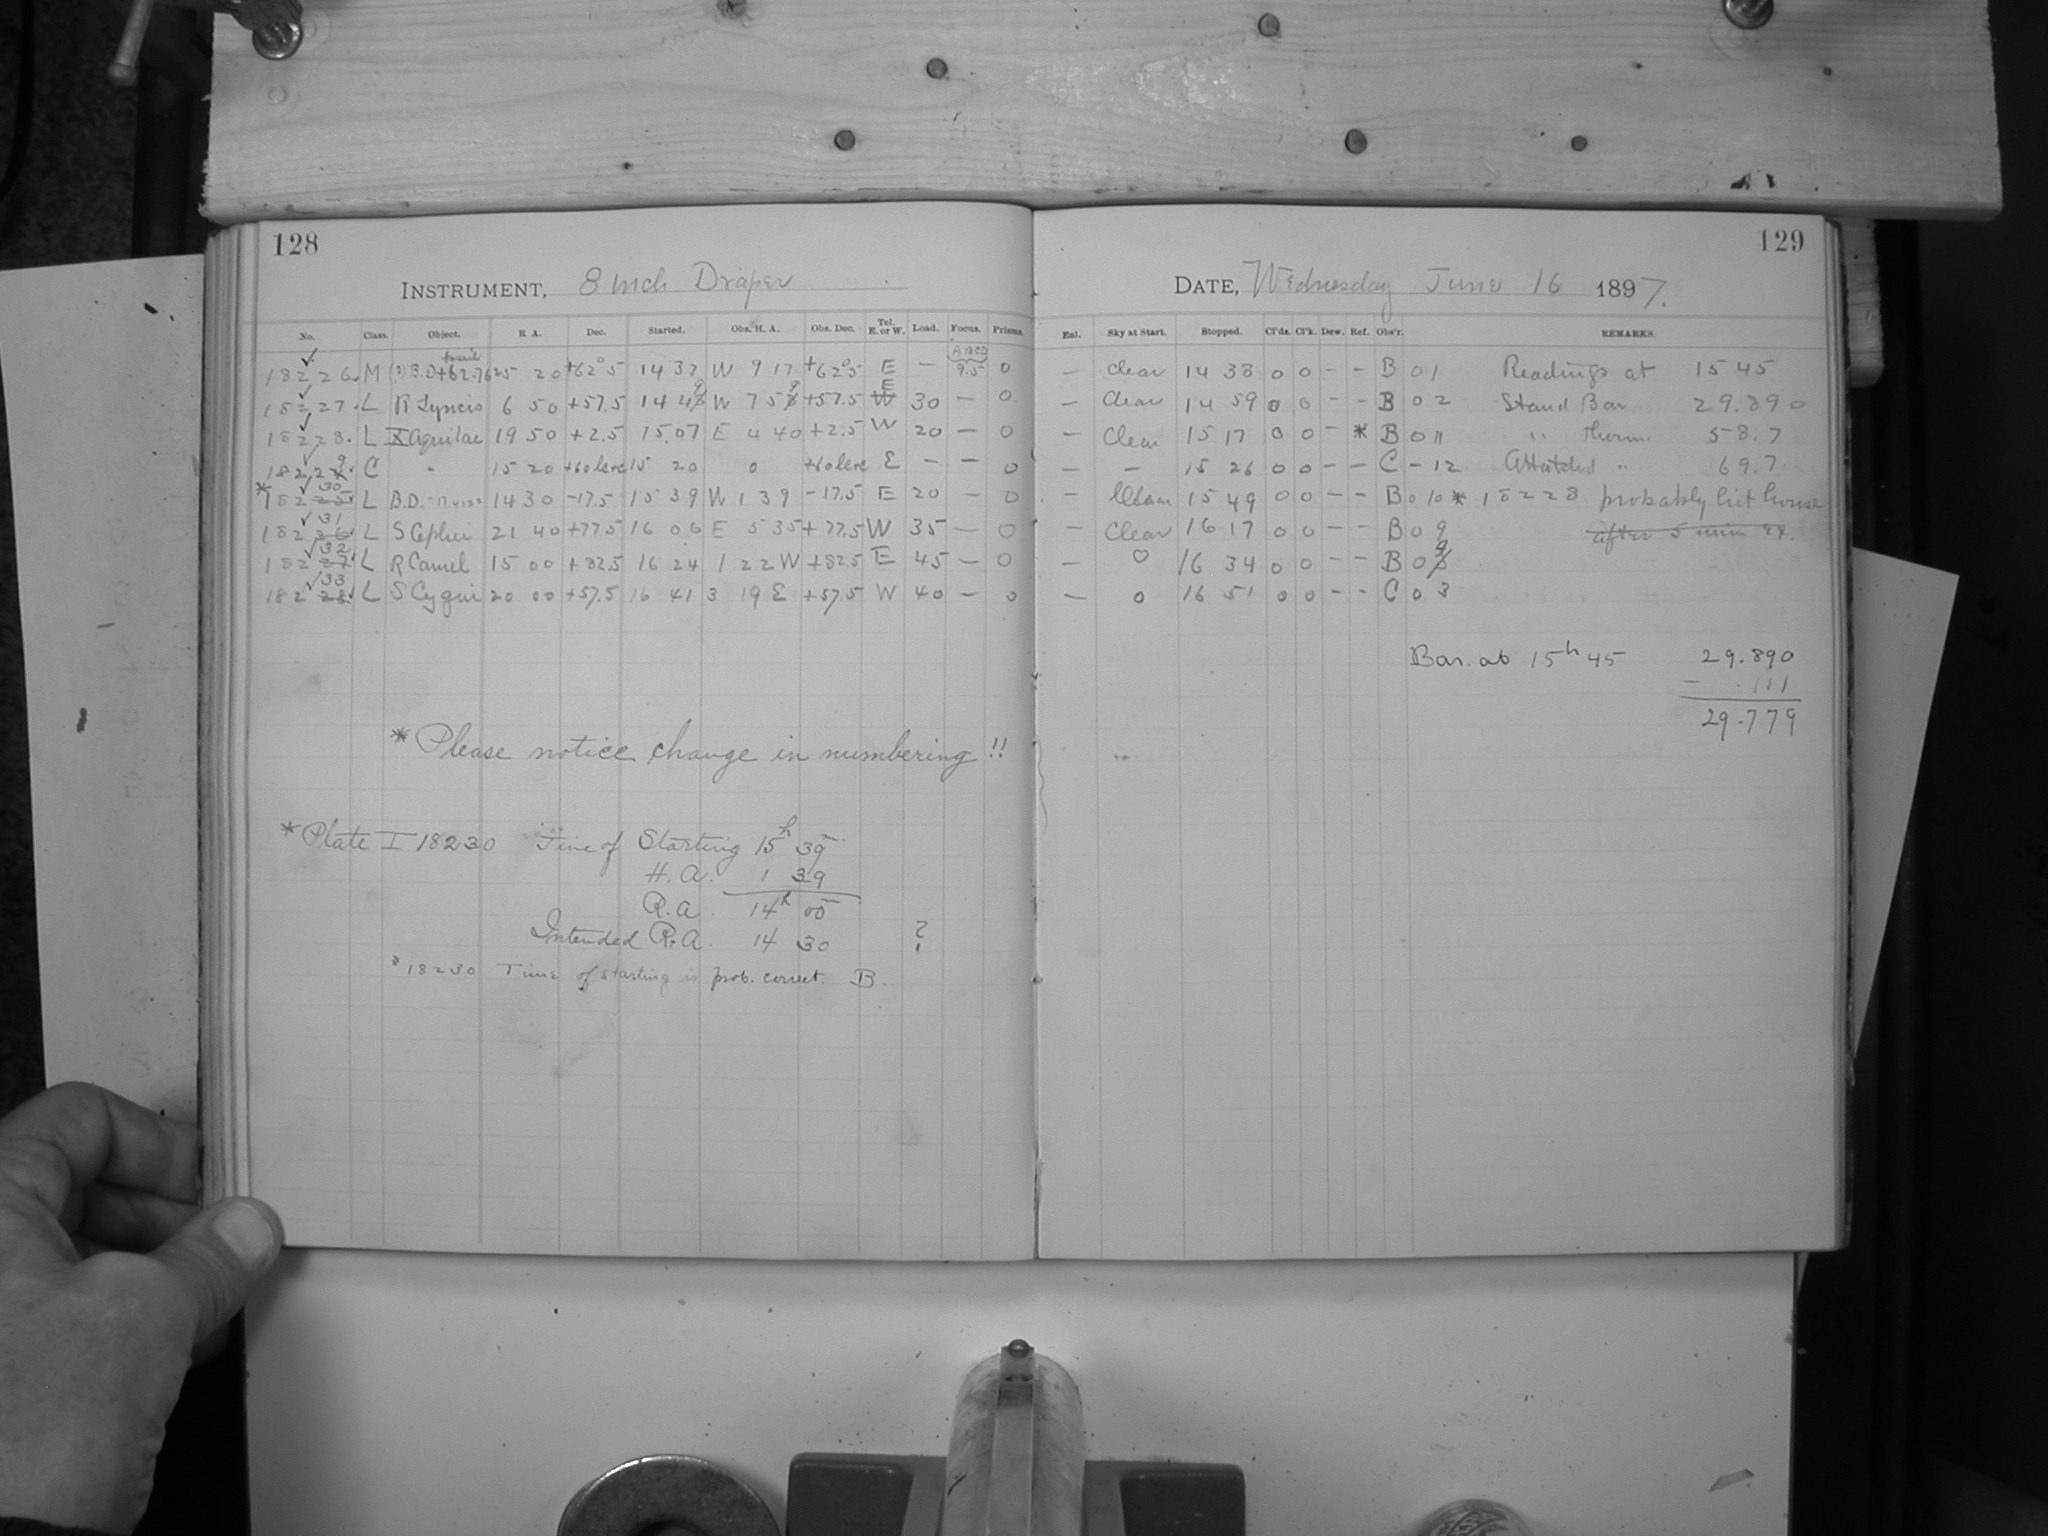 128
129
INSTRUMENT, 8 inch Draper
DATE, Wednesday June 16 1897.
No. Class. Object. R. A. Dec. Started. Obs. H. A. Obs. Dec. Tel. E. or W. Load. Focus. Prisms.
Enl. Sky at Start. Stopped. Cl'ds. Cl'k. Dew. Ref. Obs'r. REMARKS.
trail ABCD
18226. M (?) B.D+62.7625 20 +62°5 14 37 W 9 17 +62°5 E — 9.5 0 — clear 14 38 0 0 - - B 0 1 Readings at 15 45
18227. L R Lyncis 6 50 +57.5 14 49 W 7 59 +57.5 E W 30 — 0 — Clear 14 59 0 0 - - B 0 2 Stand Bar 29.890
18228. L X Aquilae 19 50 +2.5 15.07 E 4 40 +2.5 W 20 — 0 — Clear 15 17 0 0 - * B 0 11 " therm. 58.7
18229. C - 15 20 +60 lere 15 20 0 +60 lere E — — 0 — — 15 26 0 0 — — C - 12 Attatched " 69.7
* 18230 25 L B.D. -17.4122 14 30 -17.5 15 39 W 1 39 -17.5 E 20 — 0 — Clear 15 49 0 0 - - B 0 10 * 18228 probably hit house
18231 26 L S Cephei 21 40 +77.5 16 06 E 5 35 +77.5 W 35 — 0 — Clear 16 17 0 0 - - B 0 9 after 5 min ex.
18232 27 L R Camel 15 00 +82.5 16 24 1 22 W +82.5 E 45 — 0 — 0 16 34 0 0 - - B 0 9
18233 28 L S Cygni 20 00 +57.5 16 41 3 19 E +57.5 W 40 — 0 — 0 16 51 0 0 - - C 0 3
Bar. at 15h 45 29.890
— .111
29.779
* Please notice change in numbering!!
* Plate I 18230 Time of Starting 15h 39m
H.A. 1 39
R.A. 14h 00m
Intended R.A. 14 30 ?
* 18230 Time of starting is prob. correct. B.